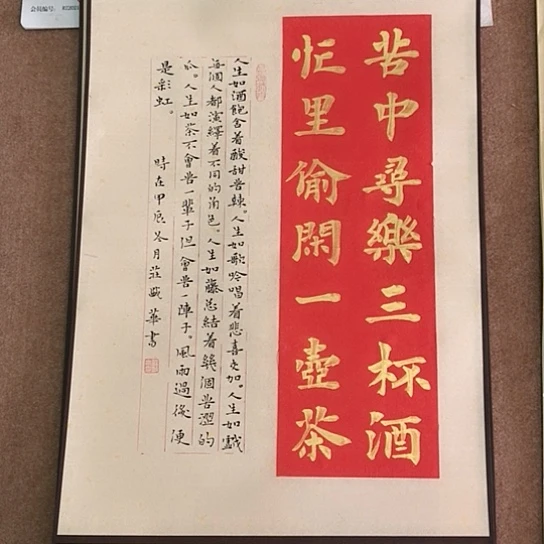 会员编号:
苦中尋樂三杯酒
忙里偷閑一壺茶
人生如酒飽含着酸甜苦辣。人生如歌吟唱着悲喜交加。人生如戲
每個人都演繹着不同的角色。人生如藤總結着幾個苦澀的
瓜。人生如茶不會苦一輩子但會苦一陣子。風雨過後便
是彩虹。
時在甲辰冬月莊 華書